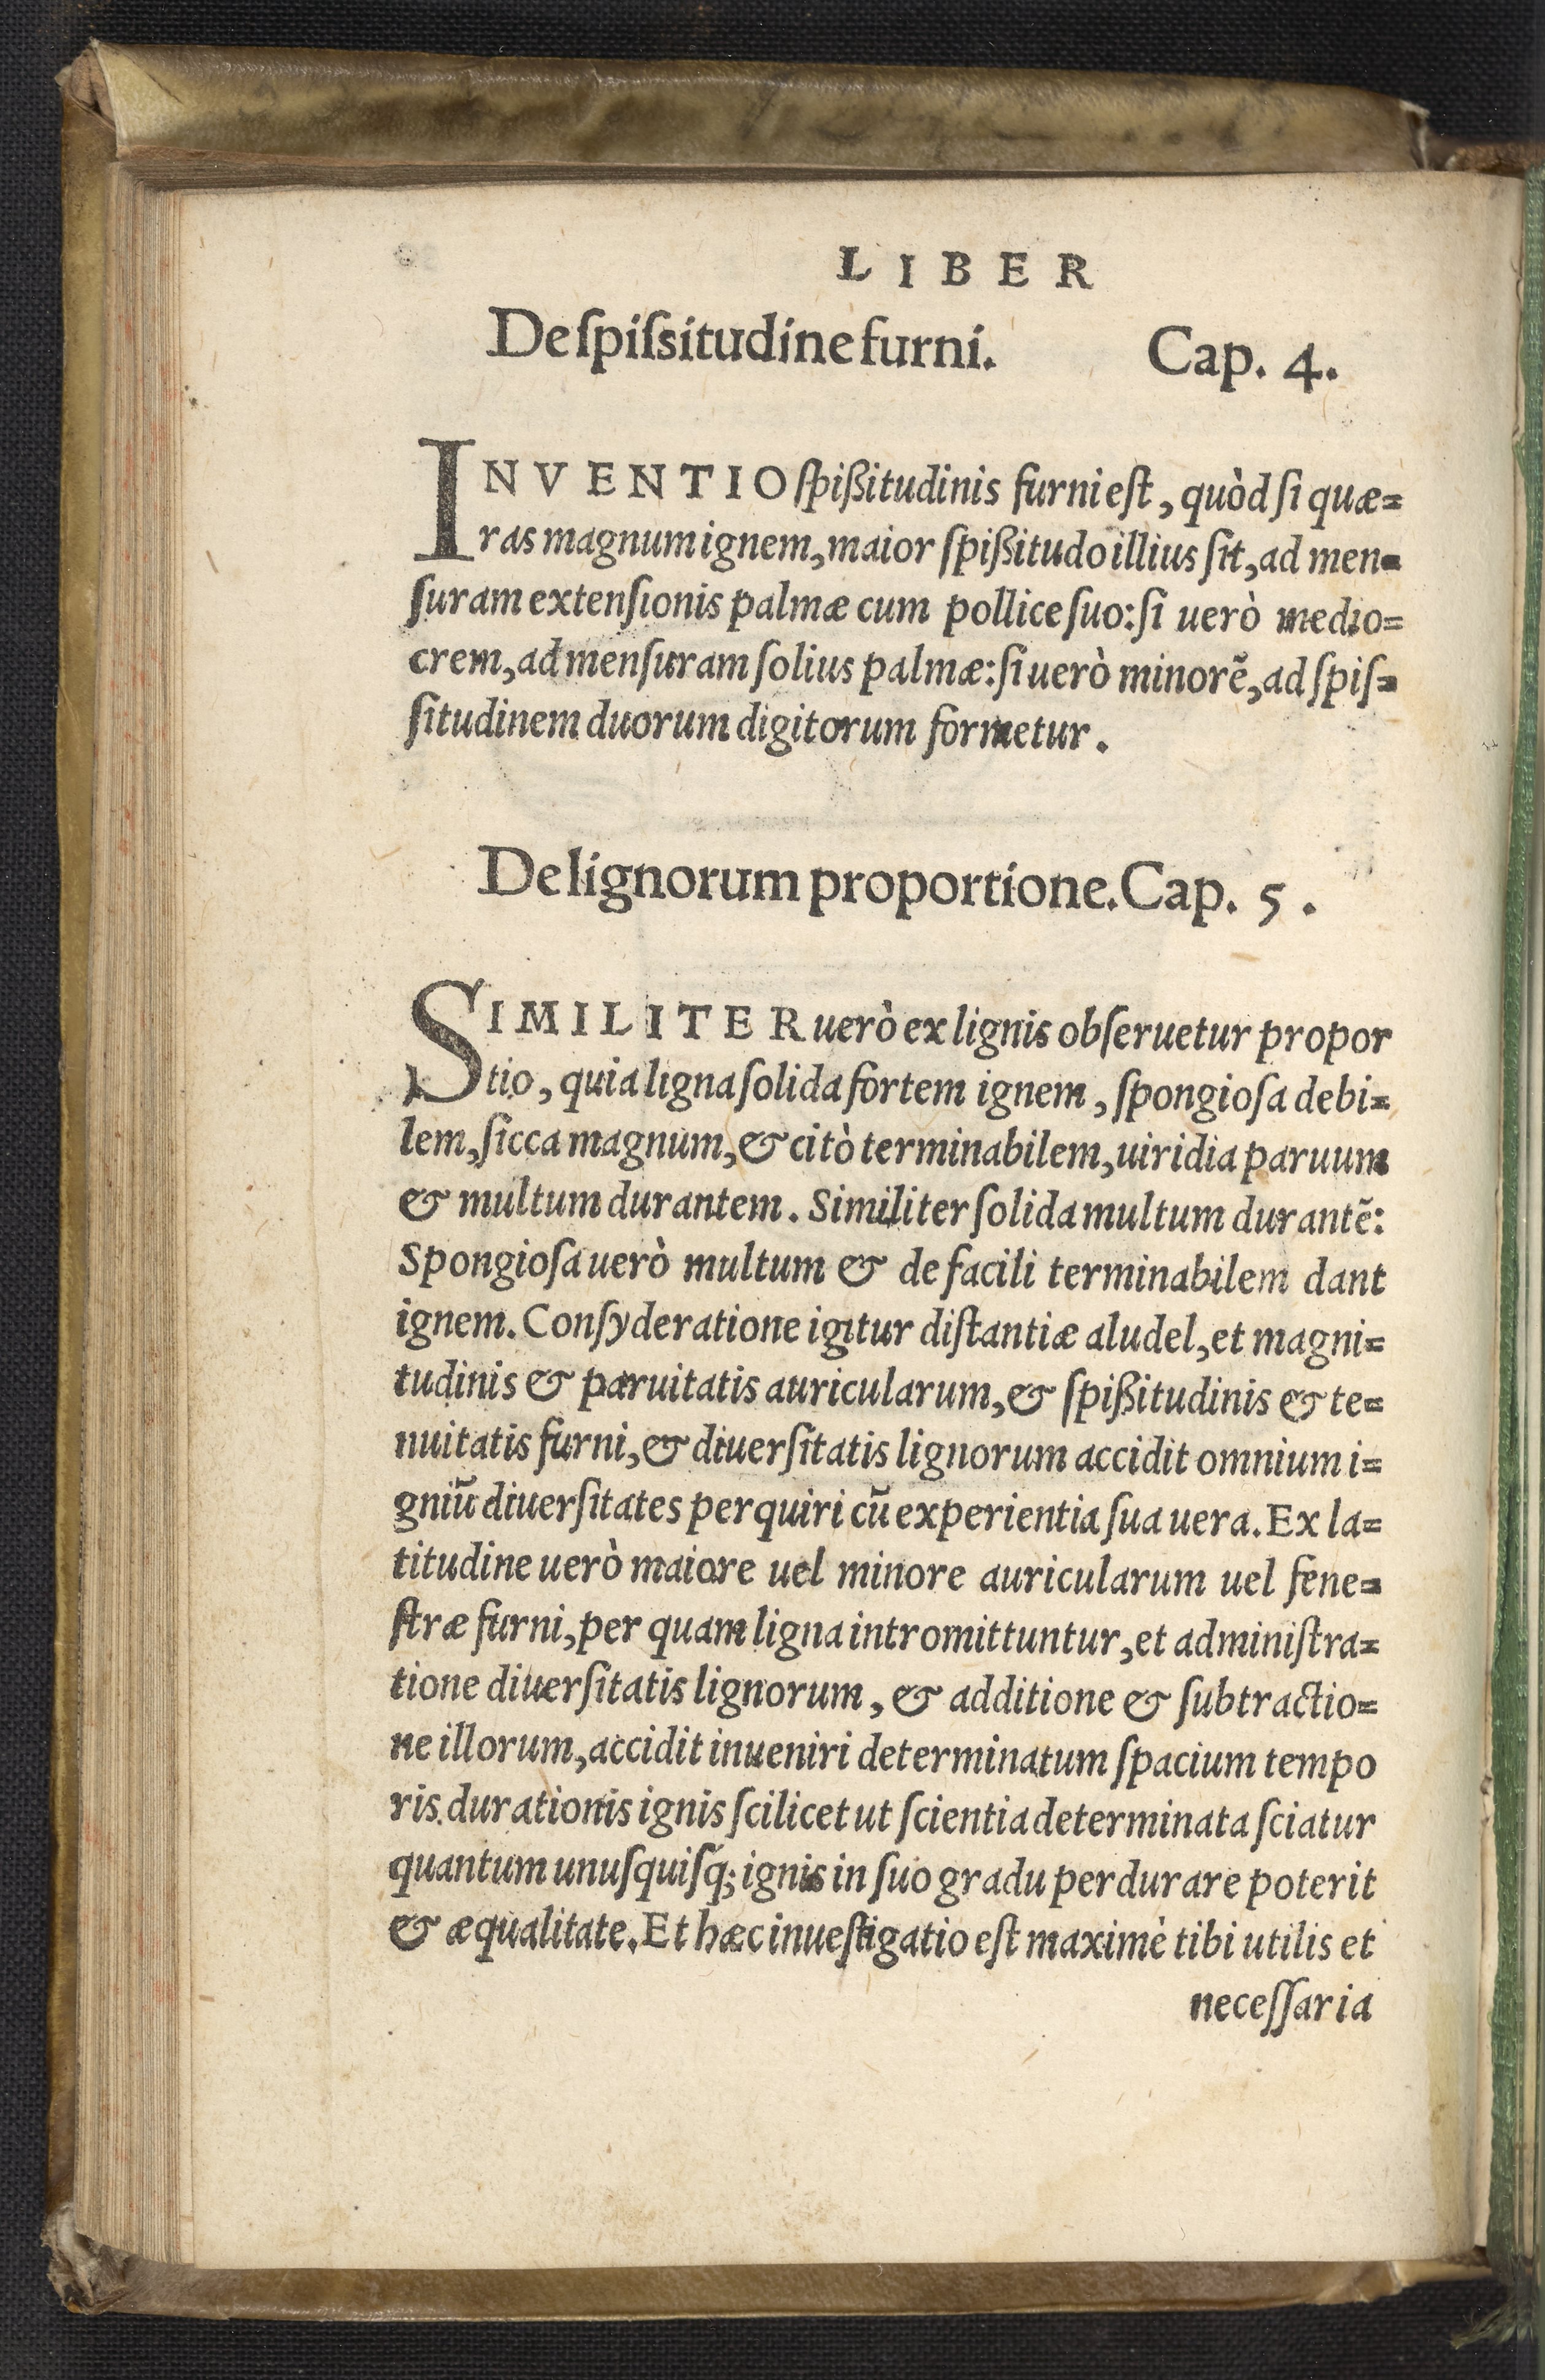 LIBER
De ſpiſsitudine furni. Cap. 4.
INVENTIO ſpißitudinis furni eſt, quòd ſi quæ=
ras magnum ignem, maior ſpißitudo illius ſit, ad men=
ſuram extenſionis palmæ cum pollice ſuo: ſi uerò medio=
crem, ad menſuram ſolius palmæ: ſi uerò minorē, ad ſpiſ=
ſitudinem duorum digitorum formetur.
De lignorum proportione. Cap. 5.
SIMILITER uerò ex lignis obſeruetur propor
tio, quia ligna ſolida fortem ignem, ſpongioſa debi=
lem, ſicca magnum, & citò terminabilem, uiridia paruum
& multum durantem. Similiter ſolida multum durantē:
Spongioſa uerò multum & de facili terminabilem dant
ignem. Conſyderatione igitur diſtantiæ aludel, et magni=
tudinis & paruitatis auricularum, & ſpißitudinis & te=
nuitatis furni, & diuerſitatis lignorum accidit omnium i=
gniū diuerſitates perquiri cū experientia ſua uera. Ex la=
titudine uerò maiore uel minore auricularum uel fene=
ſtræ furni, per quam ligna intromittuntur, et adminiſtra=
tione diuerſitatis lignorum, & additione & ſubtractio=
ne illorum, accidit inueniri determinatum ſpacium tempo
ris durationis ignis ſcilicet ut ſcientia determinata ſciatur
quantum unuſquiſq; ignis in ſuo gradu perdurare poterit
& æqualitate. Et hæc inueſtigatio eſt maximè tibi utilis et
neceſſaria